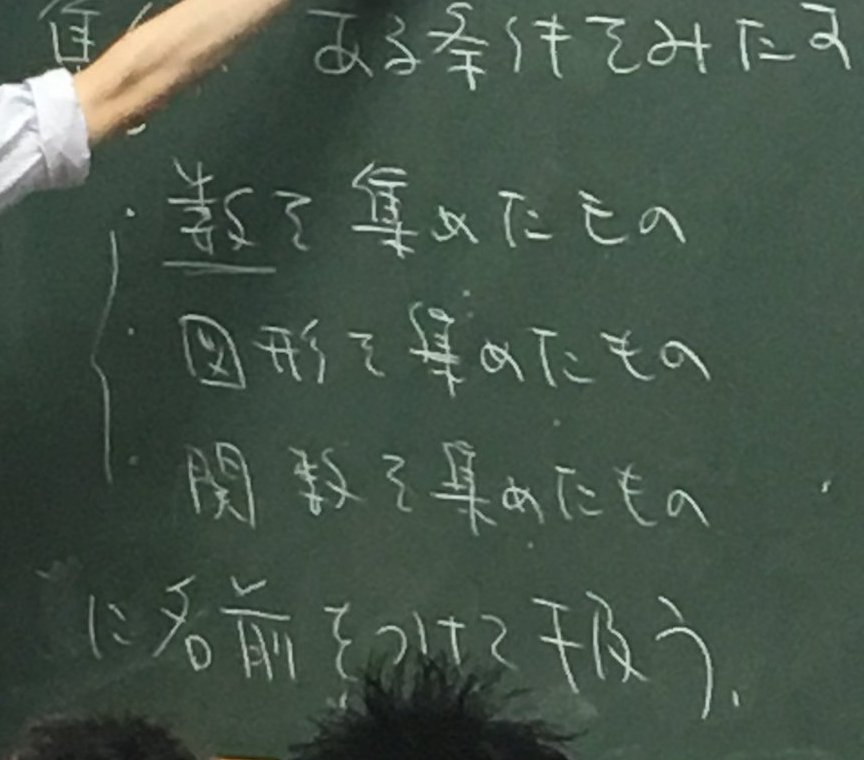 ある条件をみたす
・数を集めたもの
・図形を集めたもの
・関数を集めたもの
に名前をつけて扱う.